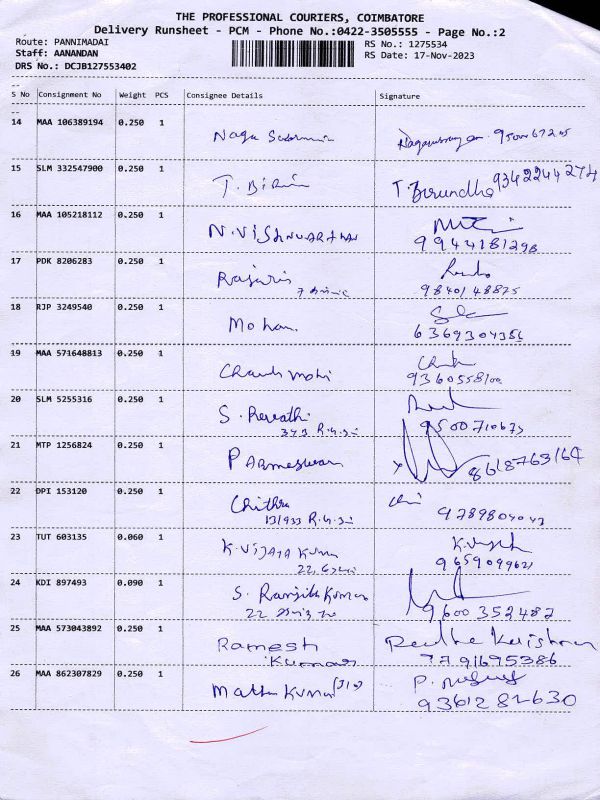 THE PROFESSIONAL COURIERS, COIMBATORE
Delivery Runsheet - PCM - Phone No.:0422-3505555 - Page No.:2
Route: PANNIMADAI RS No.: 1275534
Staff: AANANDAN RS Date: 17-Nov-2023
DRS No.: DCJB127553402
--
S No Consignment No Weight PCS Consignee Details Signature
--
14 MAA 106389194 0.250 1 Naga
15 SLM 332547900 0.250 1 T. T. Birundha 9342244274
16 MAA 105218112 0.250 1 N. VISHNUARTHAN
9944181298
17 PDK 8206283 0.250 1 Rajaris
9840148875
18 RJP 3249540 0.250 1 Mohan.
6369304356
19 MAA 571648813 0.250 1 Chandi
20 SLM 5255316 0.250 1 S. Revathi
343 R.G.
9500710673
21 MTP 1256824 0.250 1 PARMESWARI
8618763164
22 DPI 153120 0.250 1 Chithra
13/933 R.G.
9789804043
23 TUT 603135 0.060 1 K. VIJAYA Kumar
22,
9659099621
24 KDI 897493 0.090 1 S. Ranjith Kumar
22
9600352487
25 MAA 573043892 0.250 1 Ramesh Radha Krishnan
Kumar 7791695386
26 MAA 862307829 0.250 1 Kumar P.
9361281630